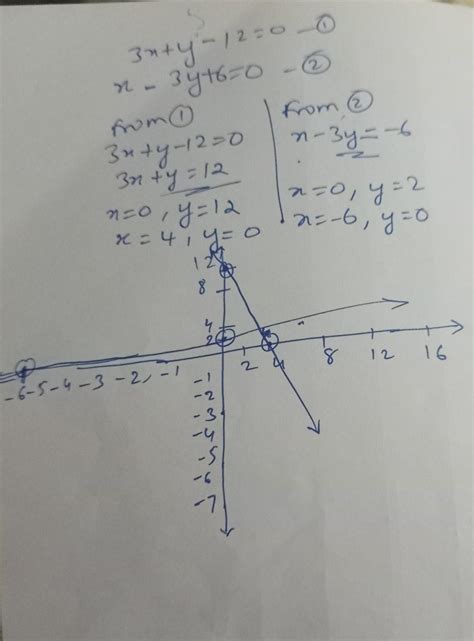 3x+y-12=0 -①
x - 3y+6=0 -②
from ①
3x+y-12=0
3x+y=12
x=0, y=12
x=4, y=0
from ②
x-3y=-6
x=0, y=2
x=-6, y=0
12
8
4
2
-6 -5 -4 -3 -2, -1 2 4 8 12 16
-1
-2
-3
-4
-5
-6
-7